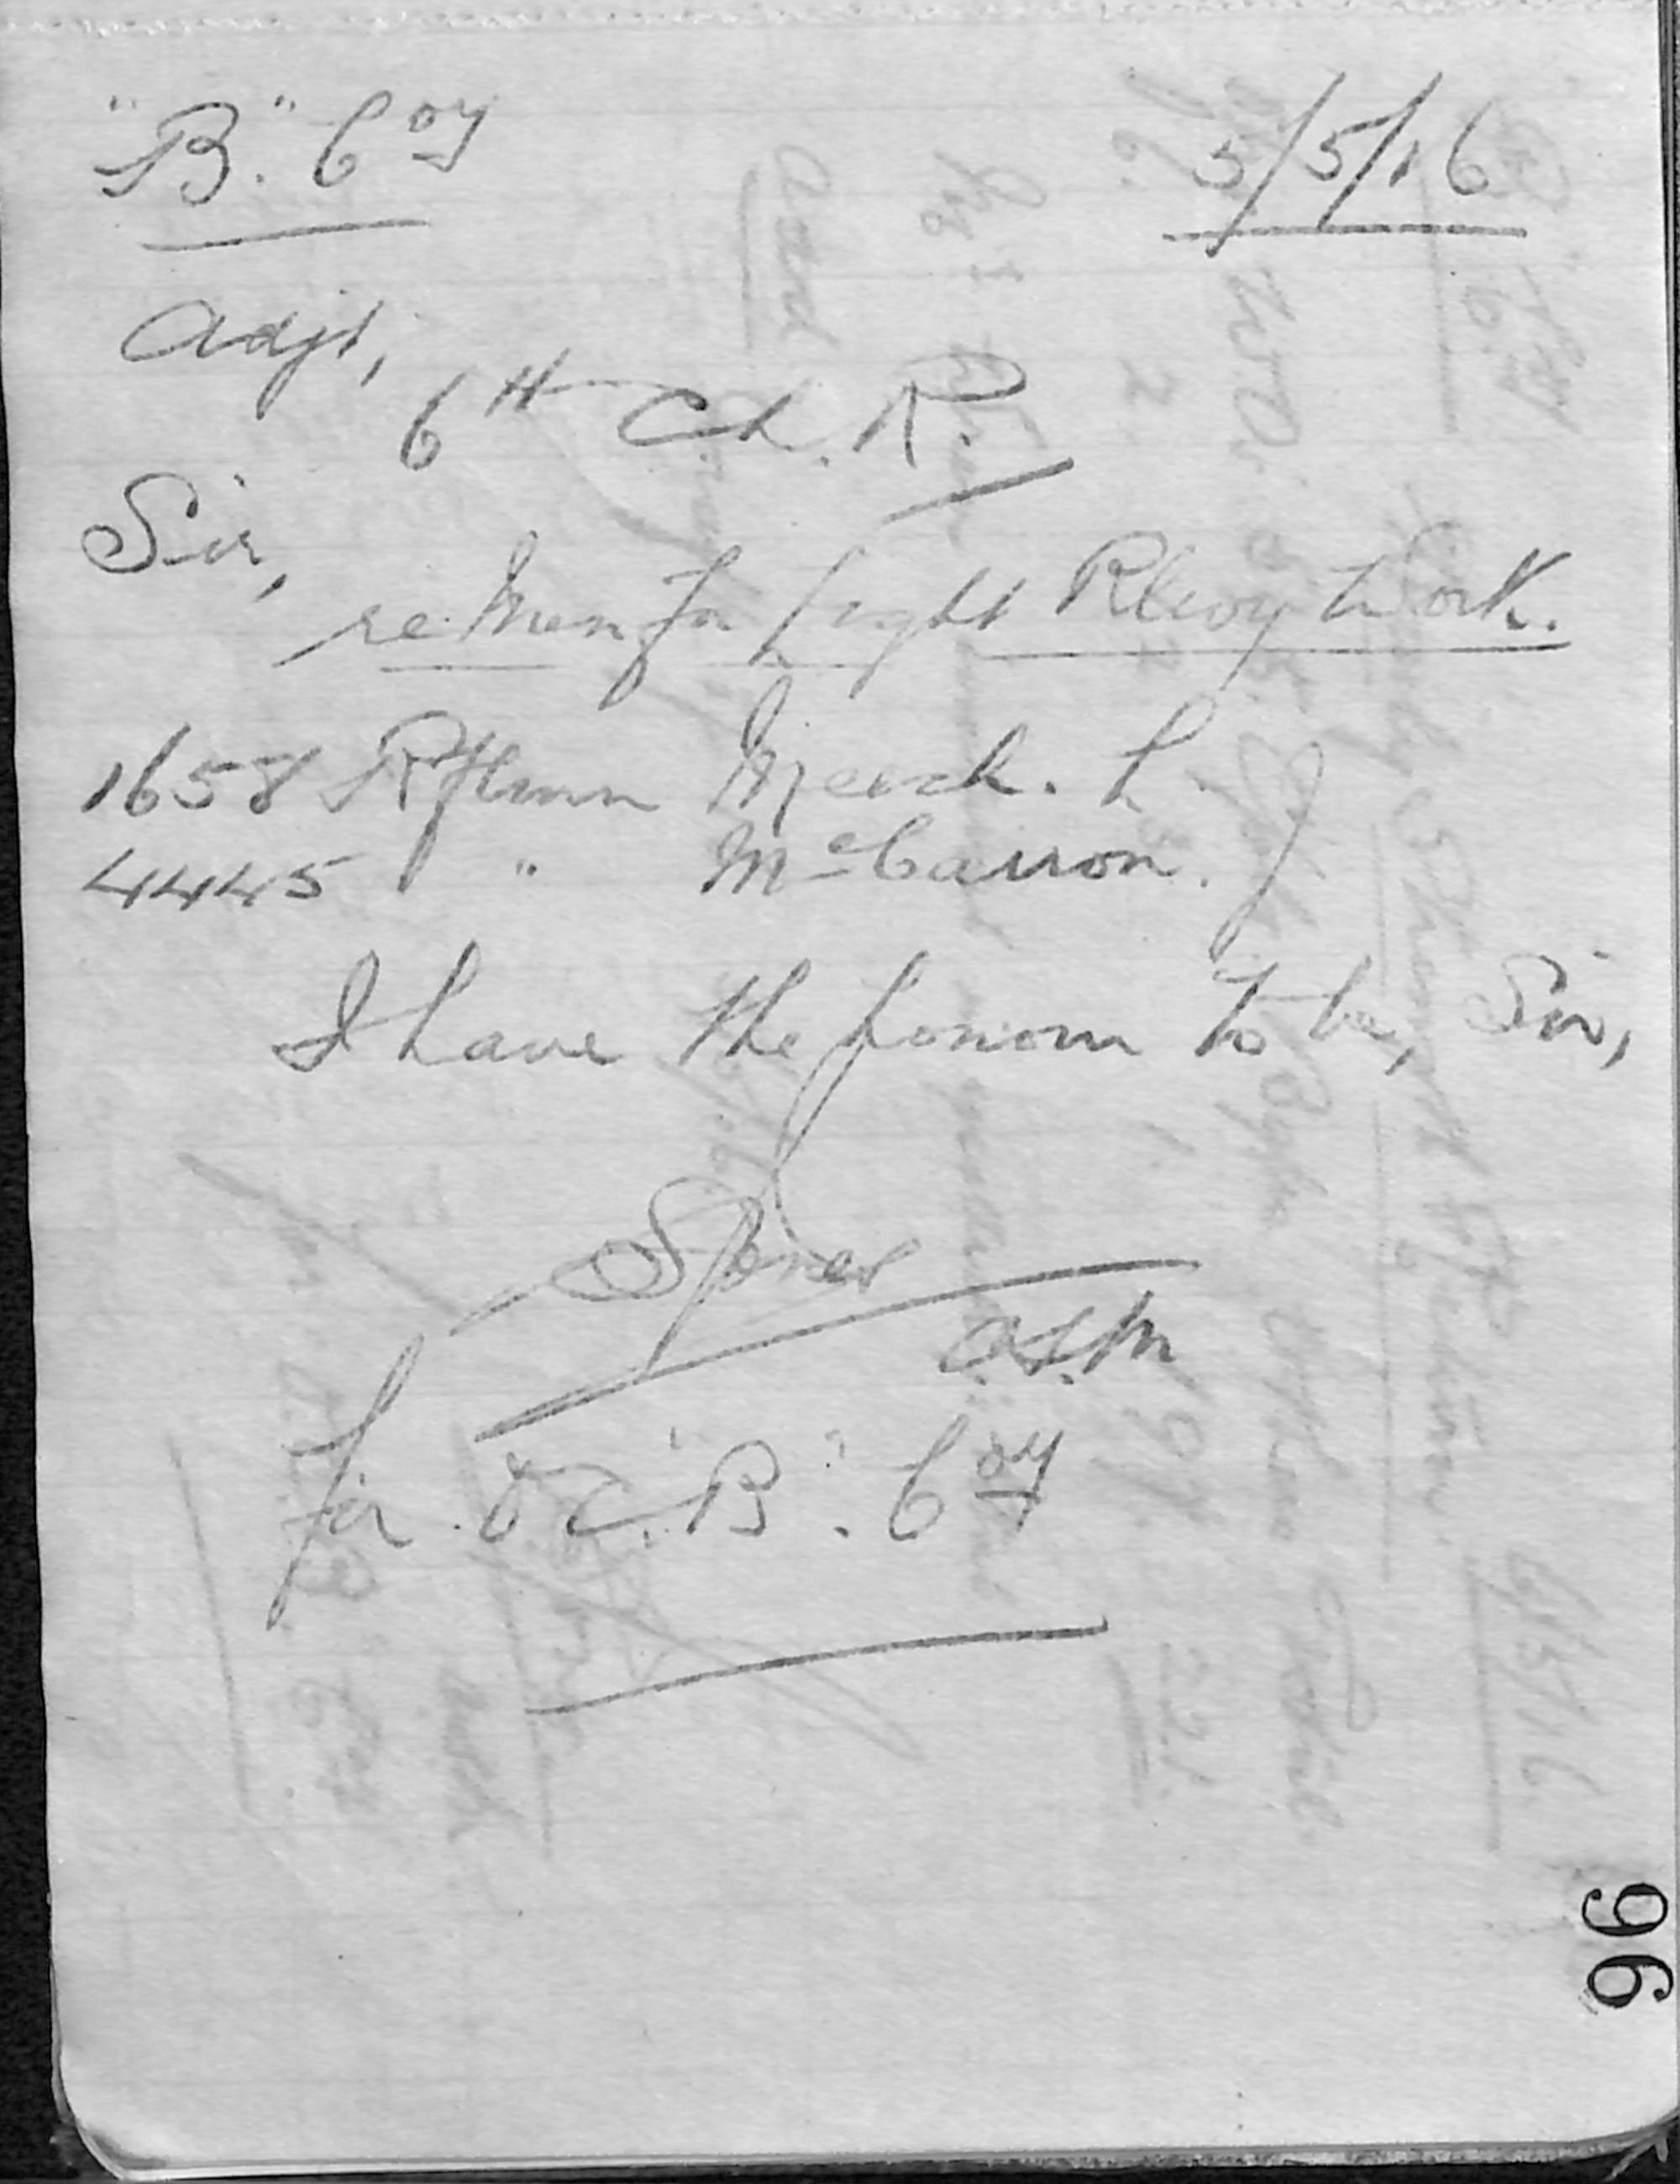 "B". Coy 5/5/16
Adjt,
6th Ch. R.
Sir,
re. Men for Light Rlwy Work.
1658 Rflmn Meech. L.
4445 " McCarron. J
I have the honour to be, Sir,
SJones
CSM
for OC. "B". Coy
96